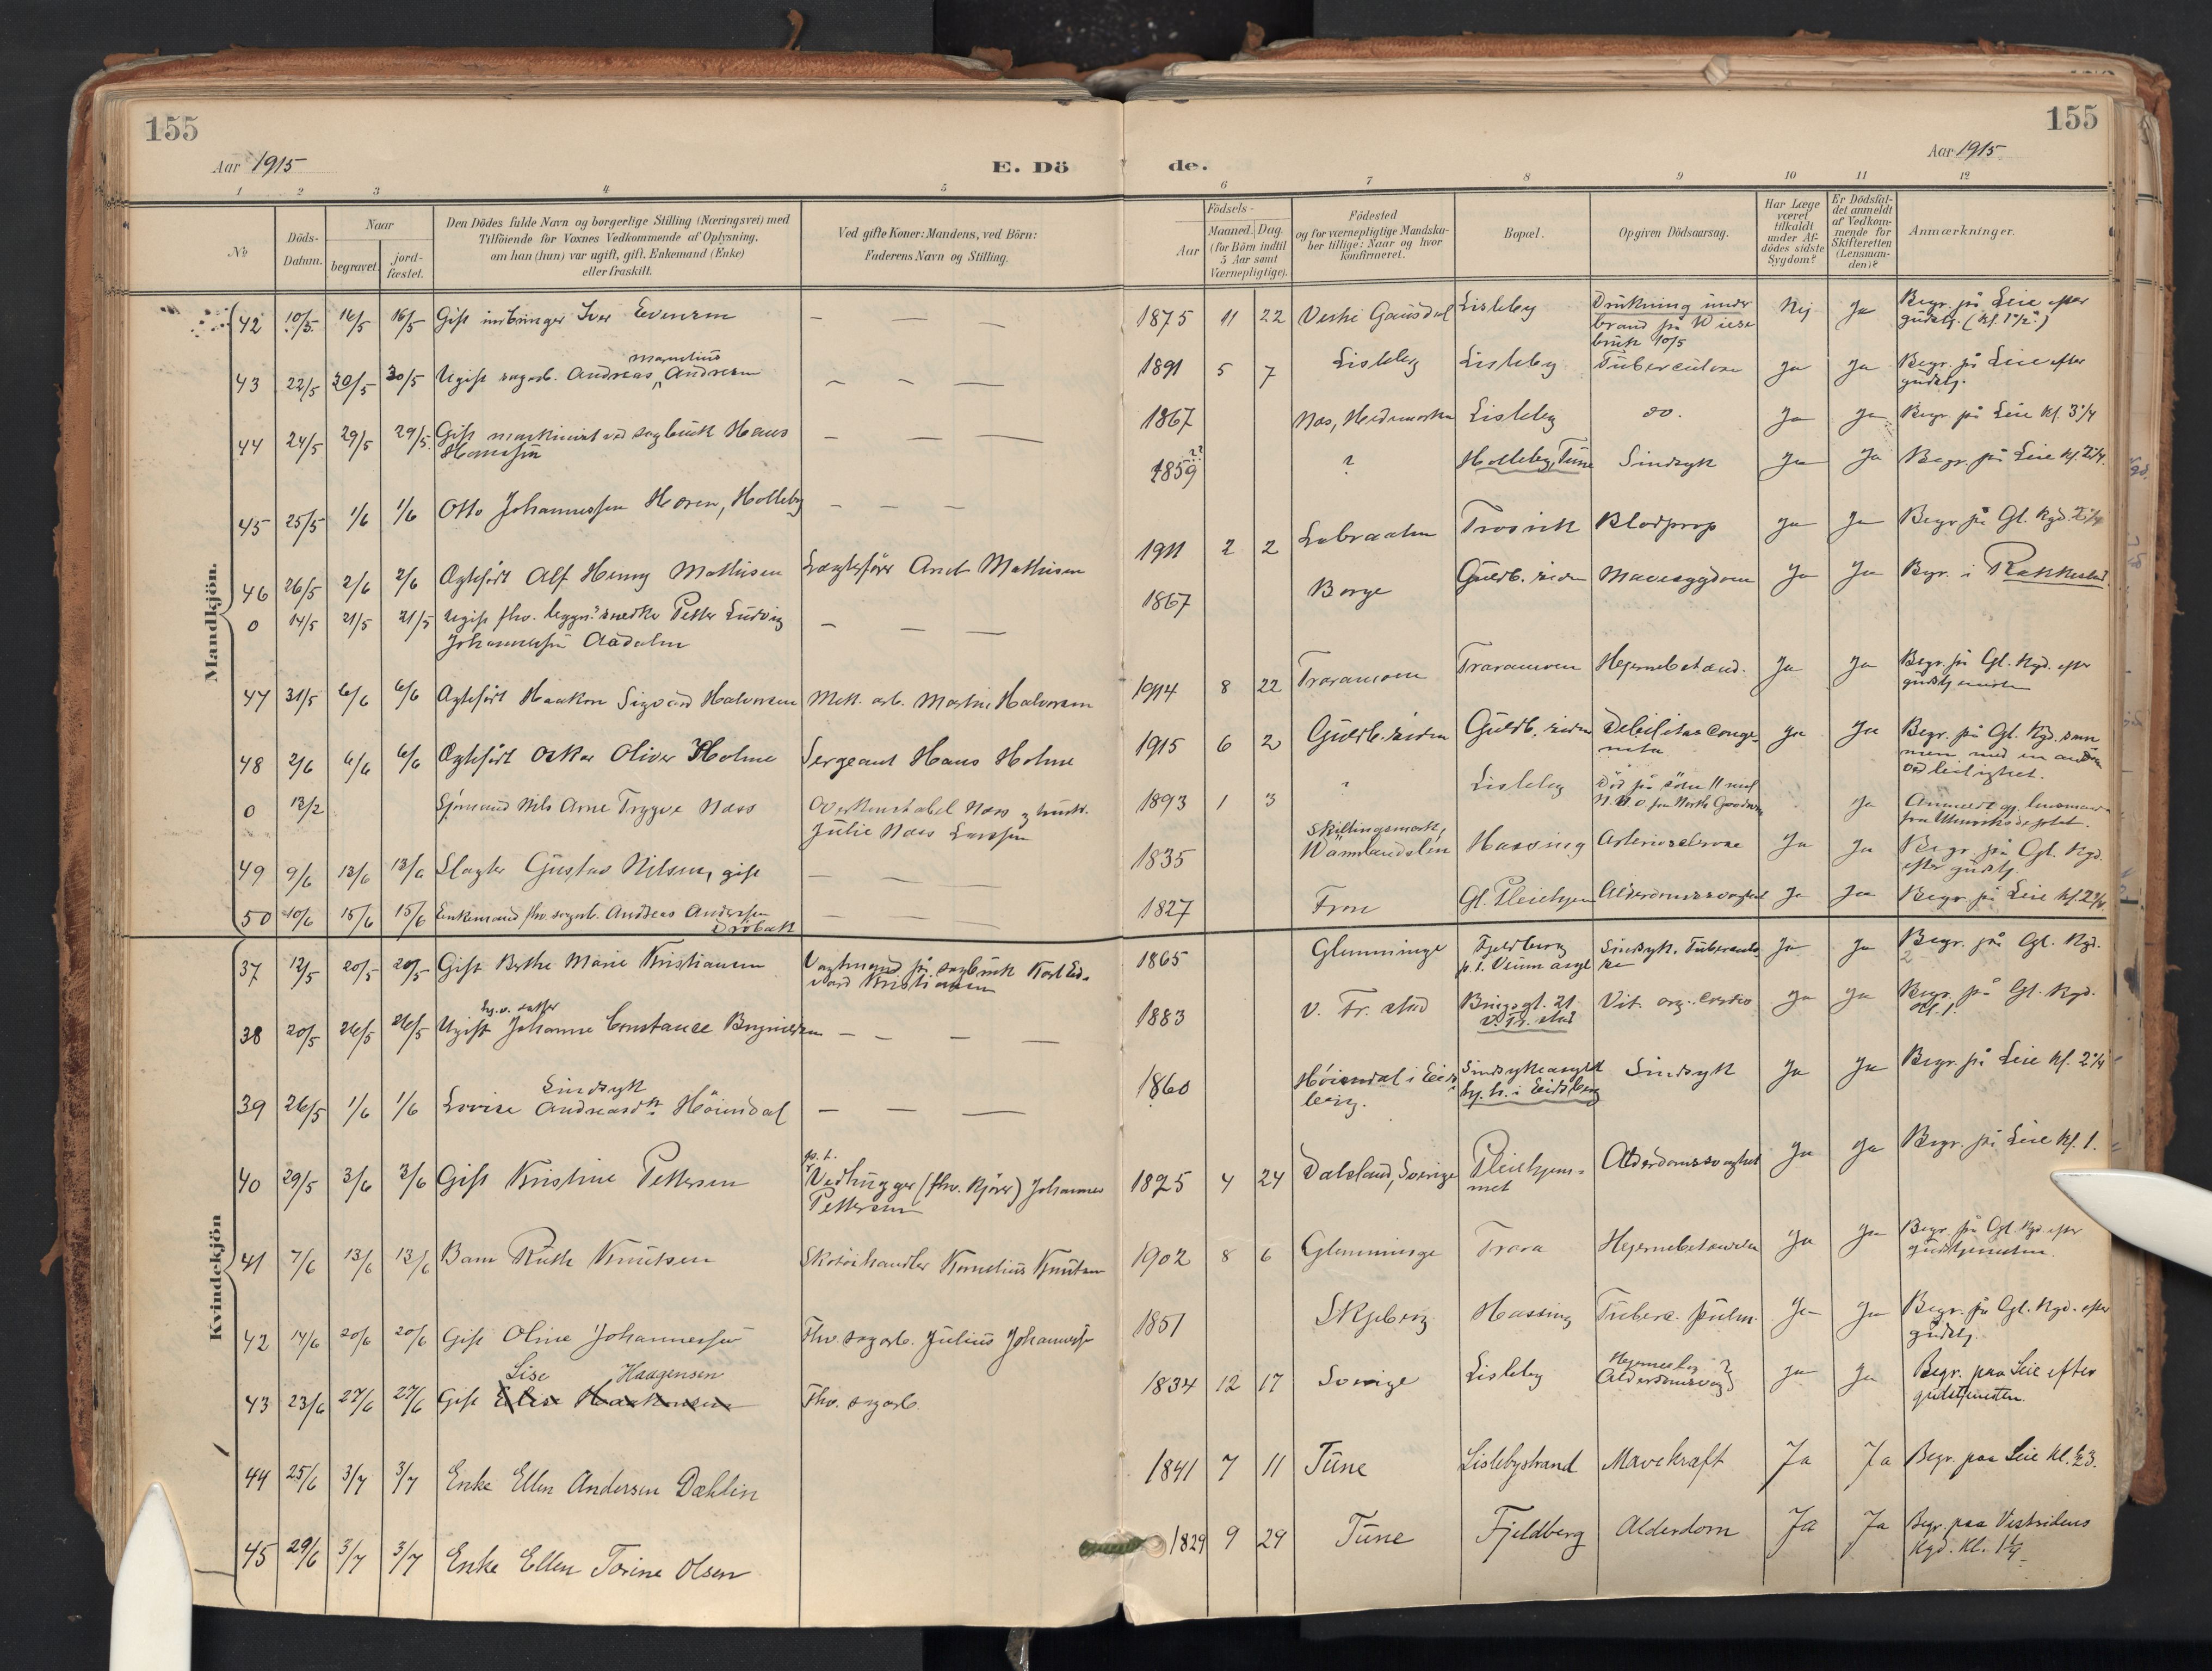 155
155
Aar 1915
E. Dö
de.
Aar 1915
1 2 3 4 5 6 7 8 9 10 11 12
No
Döds-Datum.
Naar
begravet.
jord-fæstet.
Den Dödes fulde Navn og borgerlige Stilling (Næringsvei) med
Tilföiende for Voxnes Vedkommende af Oplysning,
om han (hun) var ugift, gift, Enkemand (Enke)
eller fraskilt.
Ved gifte Koner: Mandens, ved Börn:
Faderens Navn og Stilling.
Födsels-
Aar
Maaned. Dag.
(for Börn indtil
5 Aar samt
Værnepligtige).
Födested
og for værnepligtige Mandska-
ber tillige: Naar og hvor
konfirmeret.
Bopæl.
Opgiven Dödsaarsag.
Har Læge
været
tilkaldt
under Af-
dödes sidste
Sygdom?
Er Dödsfal-
det anmeldt
af Vedkom-
mende for
Skifteretten
(Lensman-
den)?
Anmærkninger.
Mandkjön.
42 10/5 16/5 16/5 Gift Iver Evensen — — — 1875 11 22 Vestre Gausdal Lisleby Drukning under Nej Ja Begr. på Leie efter
brand på Wiese gudstj. (kl. 1 1/2)
bruk 10/5
43 22/5 30/5 30/5 Ugift sagarb. Andreas Magnelius Andresen — — — 1891 5 7 Lisleby Lisleby Tuberculose Ja Ja Begr. på Leie efter
gudstj.
44 24/5 29/5 29/5 Gift maskinist ved sagbruk Hans — — — 1867 Næs, Hedemarken Lisleby do. Ja Ja Begr. på Leie kl. 3 1/4
Hanssen
45 25/5 1/6 1/6 Otto Johannessen Horen, Holleby — — — 1859 ?? ? Holleby, Tune Sindsyk Ja Ja Begr. på Leie kl. 2 1/4.
46 26/5 2/6 2/6 Ægteført Alf Henry Mathisen Mathisen 1911 2 2 Labraaten Trosvik Blodprop Ja Ja Begr. på Gl. Kgd. 2 1/4
0 14/5 21/5 21/5 Ugift fhv. snedker Petter Ludvig — — — 1867 Borge Guldb. siden Mavesygdom Ja Ja Begr. i Rakkestad.
Johannessen Aadalen
47 31/5 6/6 6/6 Ægteført Haakon Sigvard Halvorsen Mek. arb. Martin Halvorsen 1914 8 22 Traramoen Traramoen Hjernebetænd. Ja Ja Begr. på Gl. Kgd. efter
gudstjenesten
48 2/6 6/6 6/6 Ægteført Oskar Oliver Holme Sergeant Hans Holme 1915 6 2 Guldb. siden Guldb. siden Debilitas conge- Ja Ja Begr. på Gl. Kgd. sam
nita men med en anden
ved leilighet.
0 13/2 Sjømand Nils Arne Trygve Næss Overkonstabel Næss og hustr. 1893 1 3 Lisleby Død på sjøen 11 mil Ja Anmeldt gj. lensmanden
Julie Næss Larssen N.N.O. fra North Goodwin
49 9/6 13/6 13/6 Slagter Gustav Nilsen, gift — — — 1835 Skillingsmark, Hassing Arteriosclerose Ja Ja Begr. på Gl. Kgd.
Wärmlandslen efter gudstj.
50 10/6 15/6 15/6 Enkemand fhv. sagarb. Andreas Anderssen — — 1827 Fron Gl. Pleiehjem Alderdomssvaghet Ja Ja Begr. på Leie kl. 2 1/4.
Drøbak
Kvindekjön
37 12/5 20/5 20/5 Gift Berthe Marie Kristiansen Vagtmand på sagbruk Karl Ed- 1865 Glemminge Fjeldberg Sindsyk. Tuberculo- Ja Ja Begr. på Gl. Kgd.
vard Kristiansen p.t. Veum asyl se 2
38 20/5 26/5 26/5 Ugift Johanne Constance — — — 1883 V. Fr. stad 21 Vit. org. cordis Ja Ja Begr. på Gl. Kgd.
V. Fr. stad Kl. 1.
39 26/5 1/6 1/6 Sindsyk
Lovise Andreasdtr Høiendal — — — 1860 Høiendal i Eids- Sindsykeasyl Sindsyk Ja Ja Begr. på Leie kl. 2 1/4
berg. i Eidsberg
40 29/5 3/6 3/6 Gift Kristine Pettersen p.t.
Vedhugger (fhv. kjører) Johannes 1825 4 24 Dalsland, Sverige Pleiehjem- Alderdomssvaghet Ja Ja Begr. på Leie kl. 1.
Pettersen met
41 7/6 13/6 13/6 Barn Ruth Knutsen Skotøihandler Kornelius Knutsen 1902 8 6 Glemminge Trara Hjernebetændelse Ja Ja Begr. på Gl. Kgd. efter
gudstjenesten.
42 14/6 20/6 20/6 Gift Oline Johannessen Fhv. sagarb. Julius Johannessen 1851 Skjeberg Hassing Tuberc. pulm. Ja Ja Begr. på Gl. Kgd. efter
gudstj.
Lise Haagensen
43 23/6 27/6 27/6 Gift Elise Haakonsen Fhv. sagarb. 1834 12 17 Sverige Lisleby Alderdomssvagh. ? Ja Ja Begr. paa Leie efter
gudstjenesten.
44 25/6 3/7 3/7 Enke Ellen Andersen Dæhlin 1841 7 11 Tune Lislebystrand Mavekræft Ja Ja Begr. paa Leie kl. 1/2 3.
45 29/6 3/7 3/7 Enke Ellen Torine Olsen 1829 9 29 Tune Fjeldberg Alderdom Ja Ja Begr. paa Vestsidens
Kgd. kl. 1 1/4